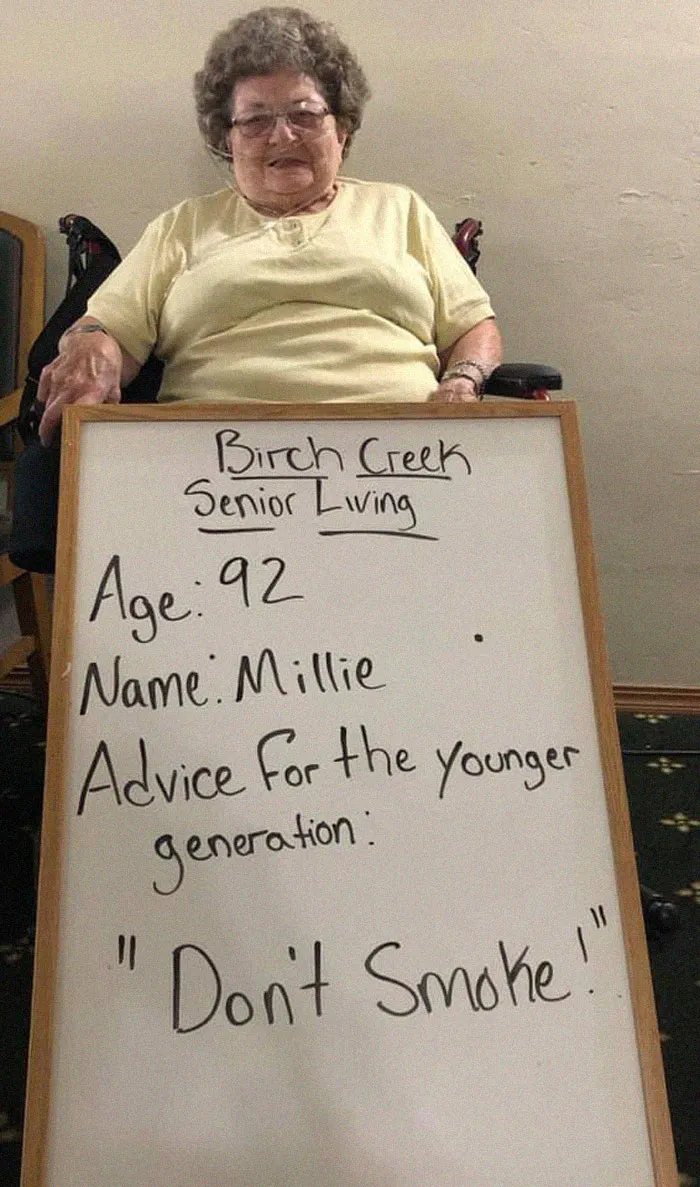 Birch Creek
Senior Living
Age: 92
Name: Millie
Advice for the younger
generation:
"Don't Smoke!"